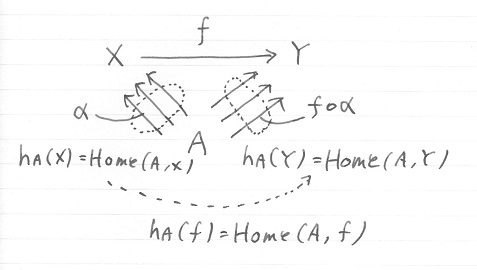 f
X Y
α f∘α
A
hA(X)=Home(A,x) hA(Y)=Home(A,Y)
hA(f)=Home(A,f)